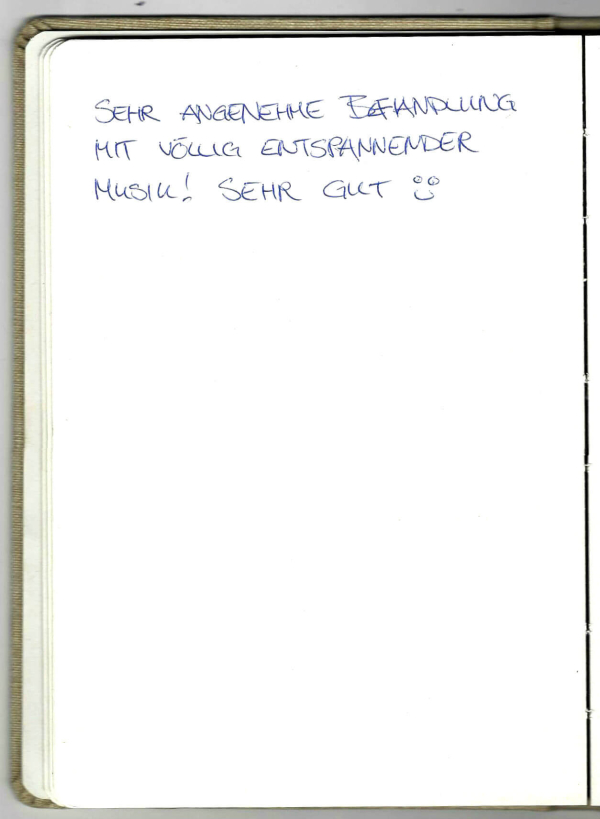 SEHR ANGENEHME BEHANDLUNG
MIT VÖLLIG ENTSPANNENDER
MUSIK! SEHR GUT ☺